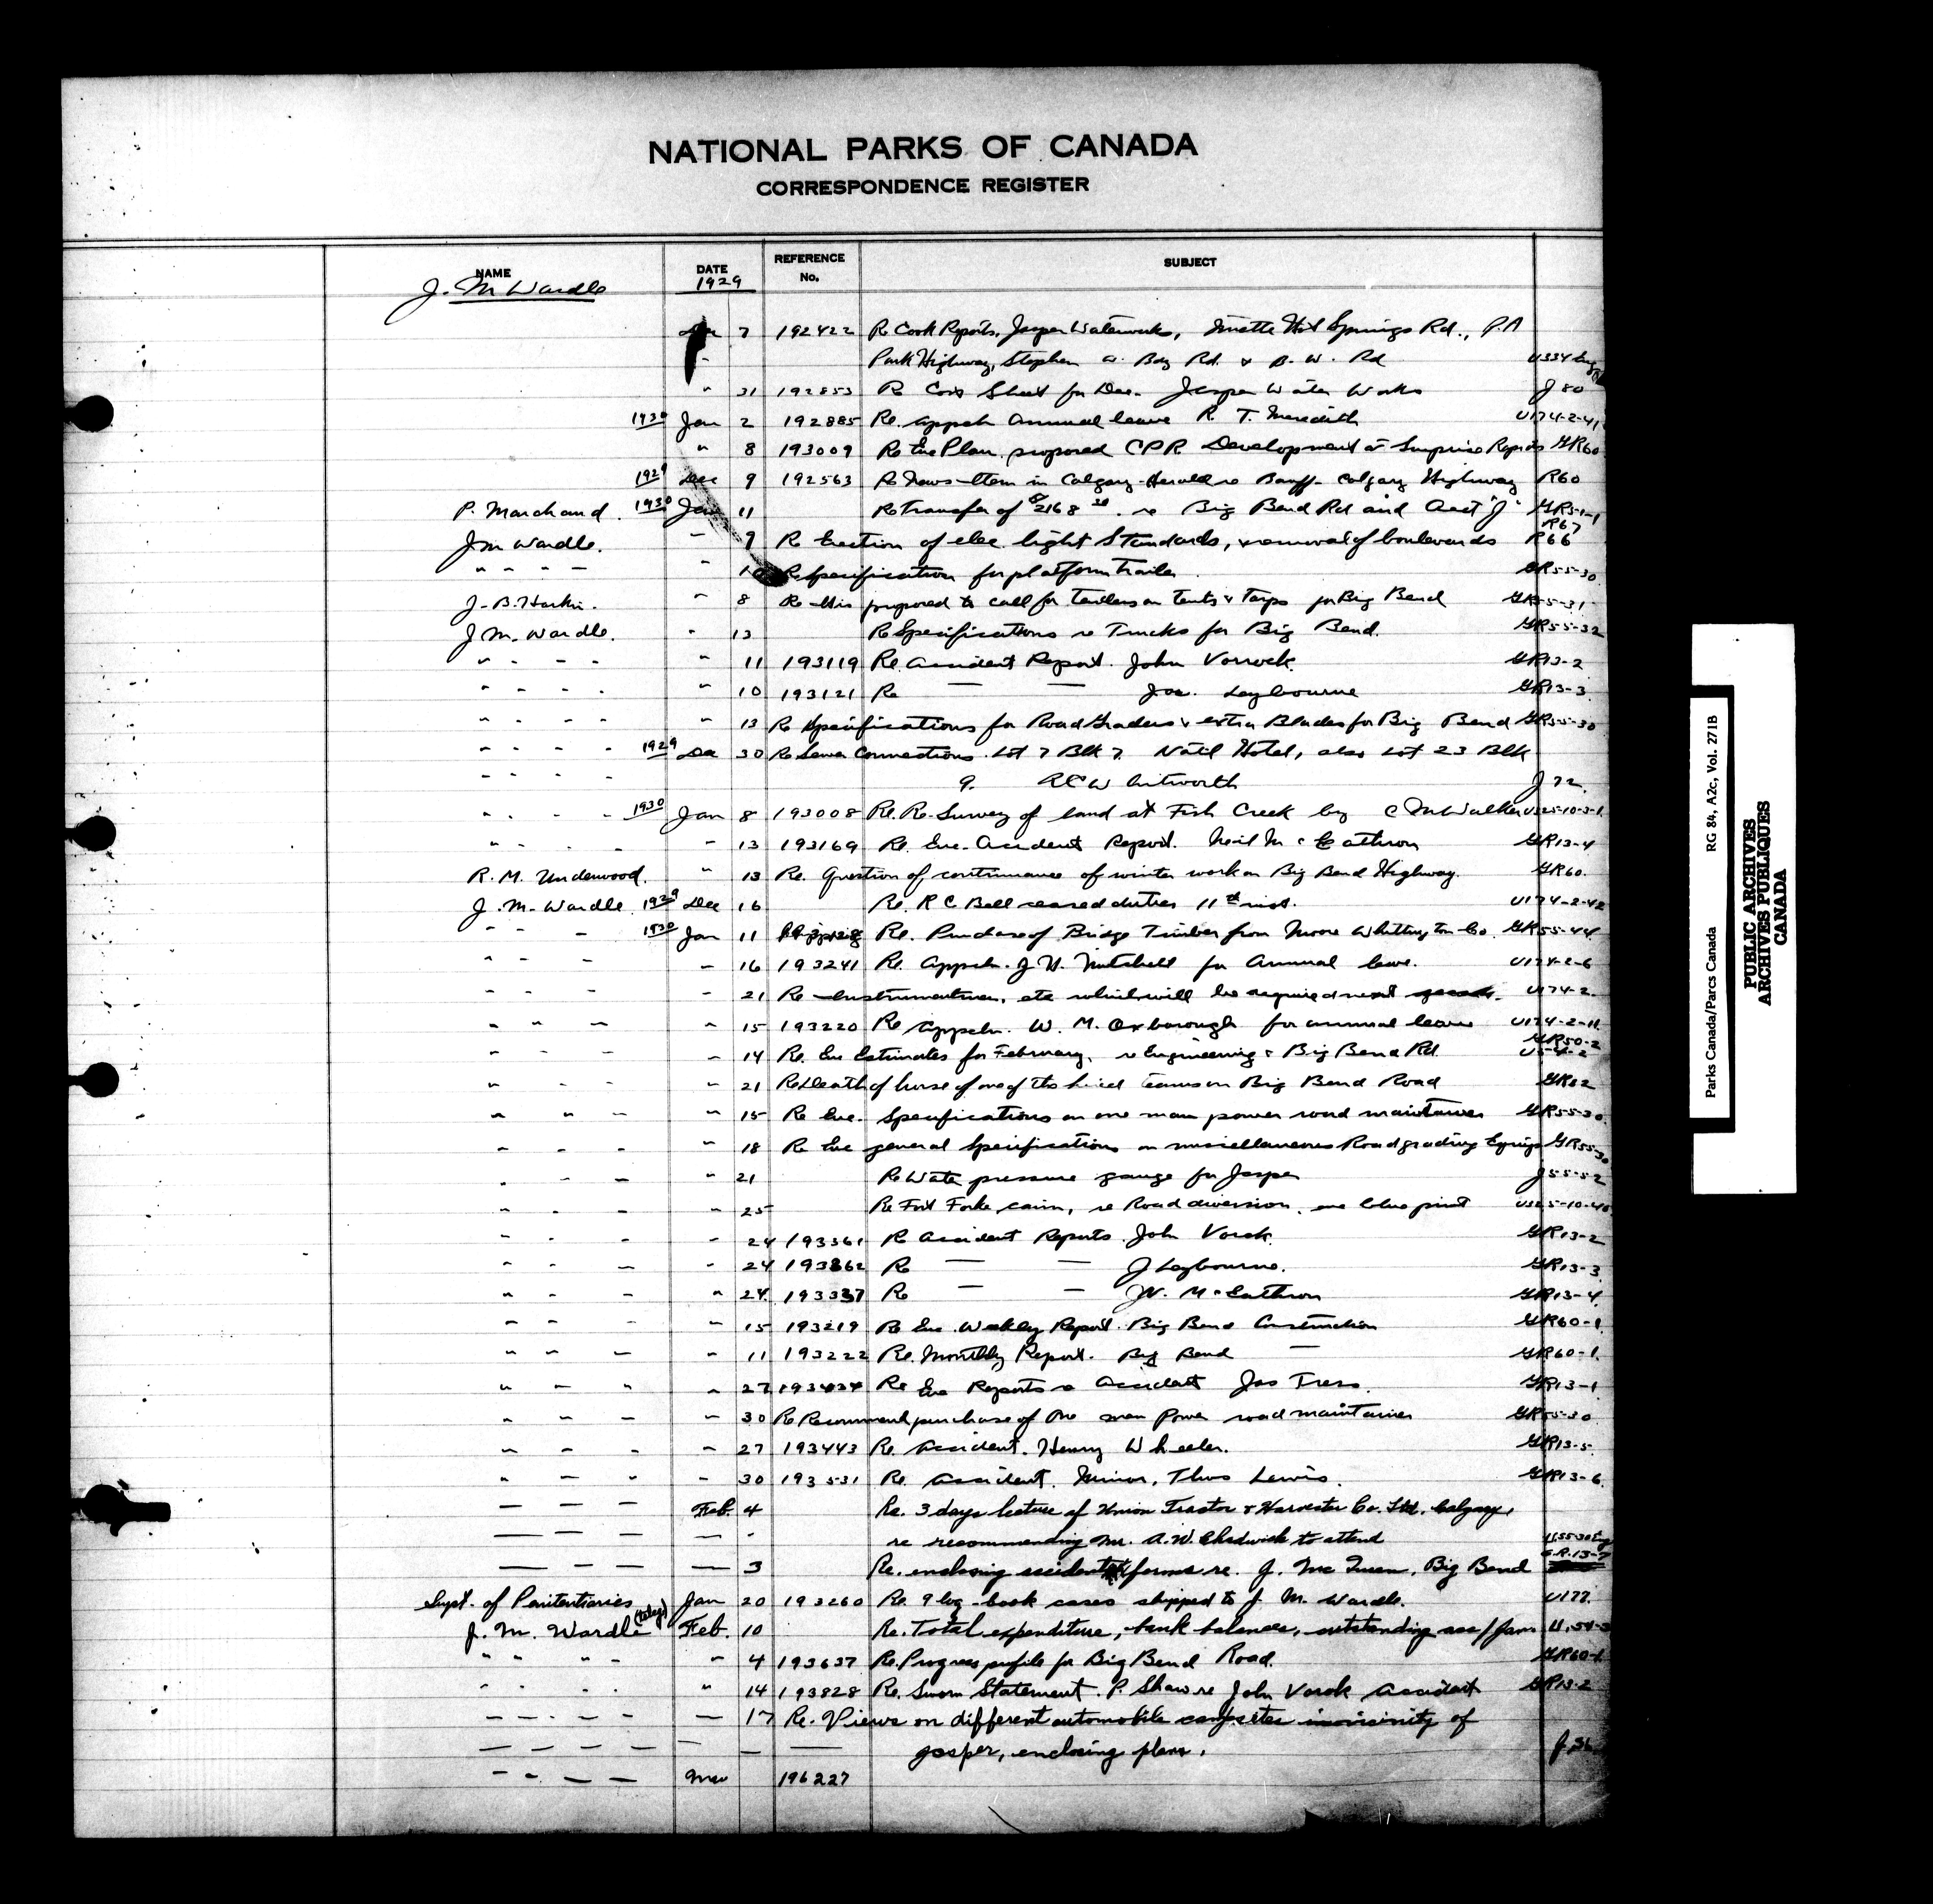 NATIONAL PARKS OF CANADA
CORRESPONDENCE REGISTER
NAME DATE REFERENCE No. SUBJECT
J. M Wardle 1929
7 192422 Re Cook Reports, Jasper Waterworks, Miette Hot Springs Rd., P.A
Park Highway, Stephen a. Bay Rd. & B. W. Rd U334
" 31 192853 Re Cost Sheet for Dec. Jasper Water Works J 80
1930 Jan 2 192885 Re. appcn Annual leave R. T. Meredith U174-2-41
" 8 193009 Re Enc Plan proposed CPR Development at Surprise Rapids GR60
1929 Dec 9 192563 Re News-Item in Calgary-Herald re Banff-Calgary Highway R60
P. Marchand. 1930 Jan 11 Re Transfer of $2168 re Big Bend Rd and Acct "J" GR5-1-1
J M Wardle. " 9 Re Erection of elec light Standards, & removal of boulevards R67 R66
" " " " " Re Specification for platform Trailer GR55-30
J. B. Harkin. " 8 Re this proposed to call for Tenders on Tents & Tarps for Big Bend GR55-31
J M. Wardle. " 13 Re Specifications re Trucks for Big Bend. GR55-32
" " " " " 11 193119 Re. accident Report. John Vorrock. GR13-2
" " " " " 10 193121 Re — — Jas. Laybourne GR13-3
" " " " " 13 Re Specifications for Road Graders & extra Blades for Big Bend GR55-30
" " " " 1929 Dec 30 Re Sewer Connections. Lot 7 Blk 7. Nat'l Hotel, also Lot 23 Blk
" " " " 9. A C Whitworth J 72
" " " " 1930 Jan 8 193008 Re. Re-Survey of land at Fish Creek by C M Walker U325-10-3-1
" " " " " 13 193169 Re. Enc. Accident Report. Neil McEathron GR13-4
R. M. Underwood. " 13 Re. Question of continuance of winter work on Big Bend Highway. GR60.
J. M. Wardle 1929 Dec 16 Re. R C Bell ceased duties 11th inst. U174-2-42
" " " 1930 Jan 11 Re. Purchase of Bridge Timber from Moore Whittington Co. GR55-44
" " " " 16 193241 Re. Appcn. J H. Mitchell for Annual leave. U174-2-6
" " " " 21 Re Instrumentmen, etc which will be required next U174-2.
" " " " 15 193220 Re Appcn. W. M. Oxborough for annual leave U174-2-11
" " " " 14 Re. Enc Estimates for February, re Engineering & Big Bend Rd. GR50-2 U54-2
" " " " 21 Re Death of horse of one of the hired teams on Big Bend Road GR82
" " " " 15 Re Enc. Specifications on one man power road maintainer GR55-30
" " " " 18 Re Enc general Specifications on miscellaneous Road grading Equip GR55-30
" " " " 21 Re Water pressure gauge for Jasper J55-52
" " " " 25 Re Fort Forke cairn, re Road diversion, enc blue print
" " " " 24 193361 Re accident Reports. John Vorok. GR13-2
" " " " 24 193362 Re — — J Laybourne. GR13-3
" " " " 24 193337 Re — — N. McEathron GR13-4
" " " " 15 193219 Re Enc. Weekly Report. Big Bend Construction GR60-1
" " " " 11 193222 Re. Monthly Report. Big Bend — GR60-1.
" " " " 27 193434 Re Enc Reports re accident Jas Tress. GR13-1
" " " " 30 Re Recommend purchase of One man Power road maintainer GR55-30
" " " " 27 193443 Re. Accident. Henry Wheeler. GR13-5
" " " " 30 193531 Re. accident. Minor. Thos Lewis. GR13-6
— — — Feb. 4 Re. 3 days lecture of Union Tractor & Harvester Co. Ltd. Calgary,
— — — — " re recommending Mr. A.W. Chadwick to attend U.55-30
— — — — 3 Re. enclosing accident forms re. J. Mc Queen, Big Bend G.R.13-7
Supt. of Penitentiaries Jan 20 193260 Re. 9 log-book cases shipped to J. M. Wardle. U177.
J. M. Wardle (telegr) Feb. 10 Re. Total expenditure, bank balances, outstanding acc/Jan
" " " " " 4 193637 Re. Progress profile for Big Bend Road. GR60-1
" " " " " 14 193828 Re. Sworn Statement. P. Shaw re John Vorok accident GR13-2
— — — — — 17 Re. Views on different automobile campsites in vicinity of
— — — — — — — Jasper, enclosing plan.
— — — — Mar 196227
Parks Canada/Parcs Canada RG 84, A2c, Vol. 271B
PUBLIC ARCHIVES
ARCHIVES PUBLIQUES
CANADA